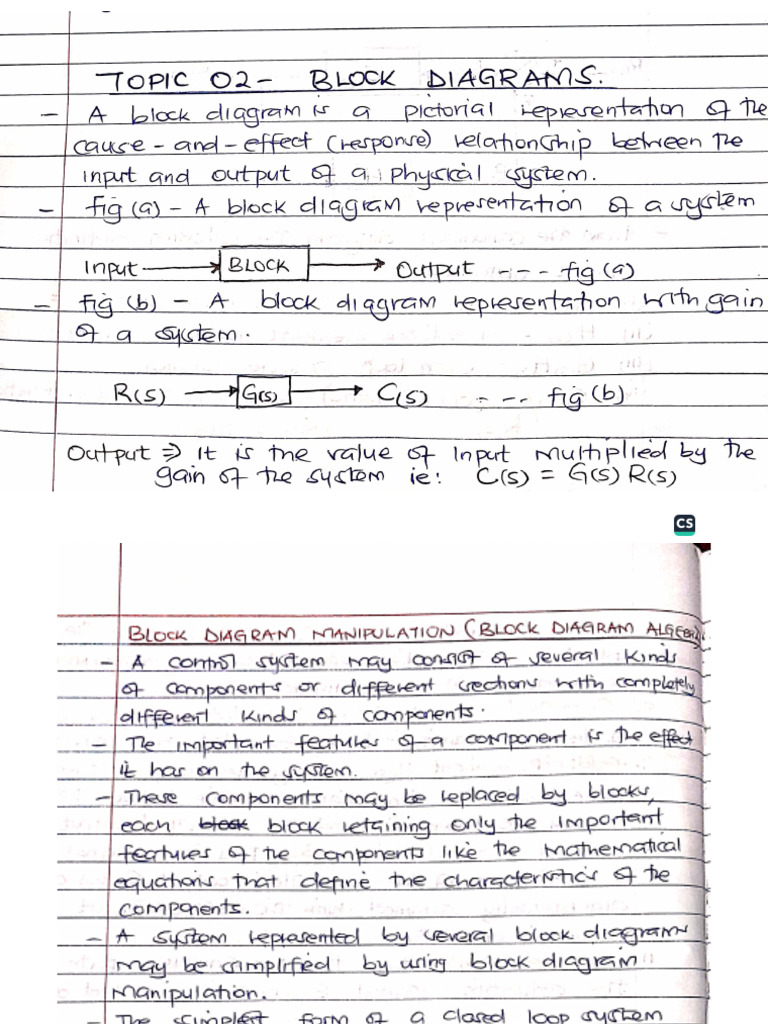 TOPIC 02 - BLOCK DIAGRAMS.
- A block diagram is a pictorial representation of the
cause-and-effect (response) relationship between the
input and output of a physical system.
- fig (a) - A block diagram representation of a system
Input BLOCK Output --- fig (a)
- fig (b) - A block diagram representation with gain
of a system.
R(s) G(s) C(s) --- fig (b)
Output ⇒ It is the value of input multiplied by the
gain of the system ie: C(s) = G(s) R(s)
CS
BLOCK DIAGRAM MANIPULATION (BLOCK DIAGRAM
- A control system may consist of several kinds
of components or different sections with completely
different kinds of components.
- The important features of a component is the effect
it has on the system.
- These components may be replaced by blocks,
each block block retaining only the important
features of the components like the mathematical
equations that define the characteristics of the
components.
- A system represented by several block diagrams
may be simplified by using block diagram
manipulation.
- The simplest form of a closed loop system